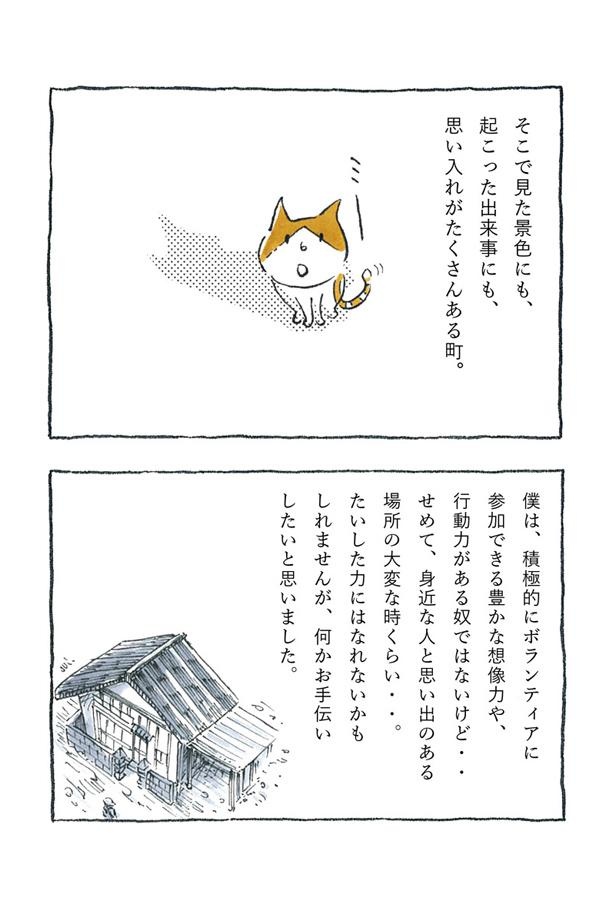 そこで見た景色にも、
起こった出来事にも、
思い入れがたくさんある町。
僕は、積極的にボランティアに
参加できる豊かな想像力や、
行動力がある奴ではないけど・・
せめて、身近な人と思い出のある
場所の大変な時くらい・・。
たいした力にはなれないかも
しれませんが、何かお手伝い
したいと思いました。